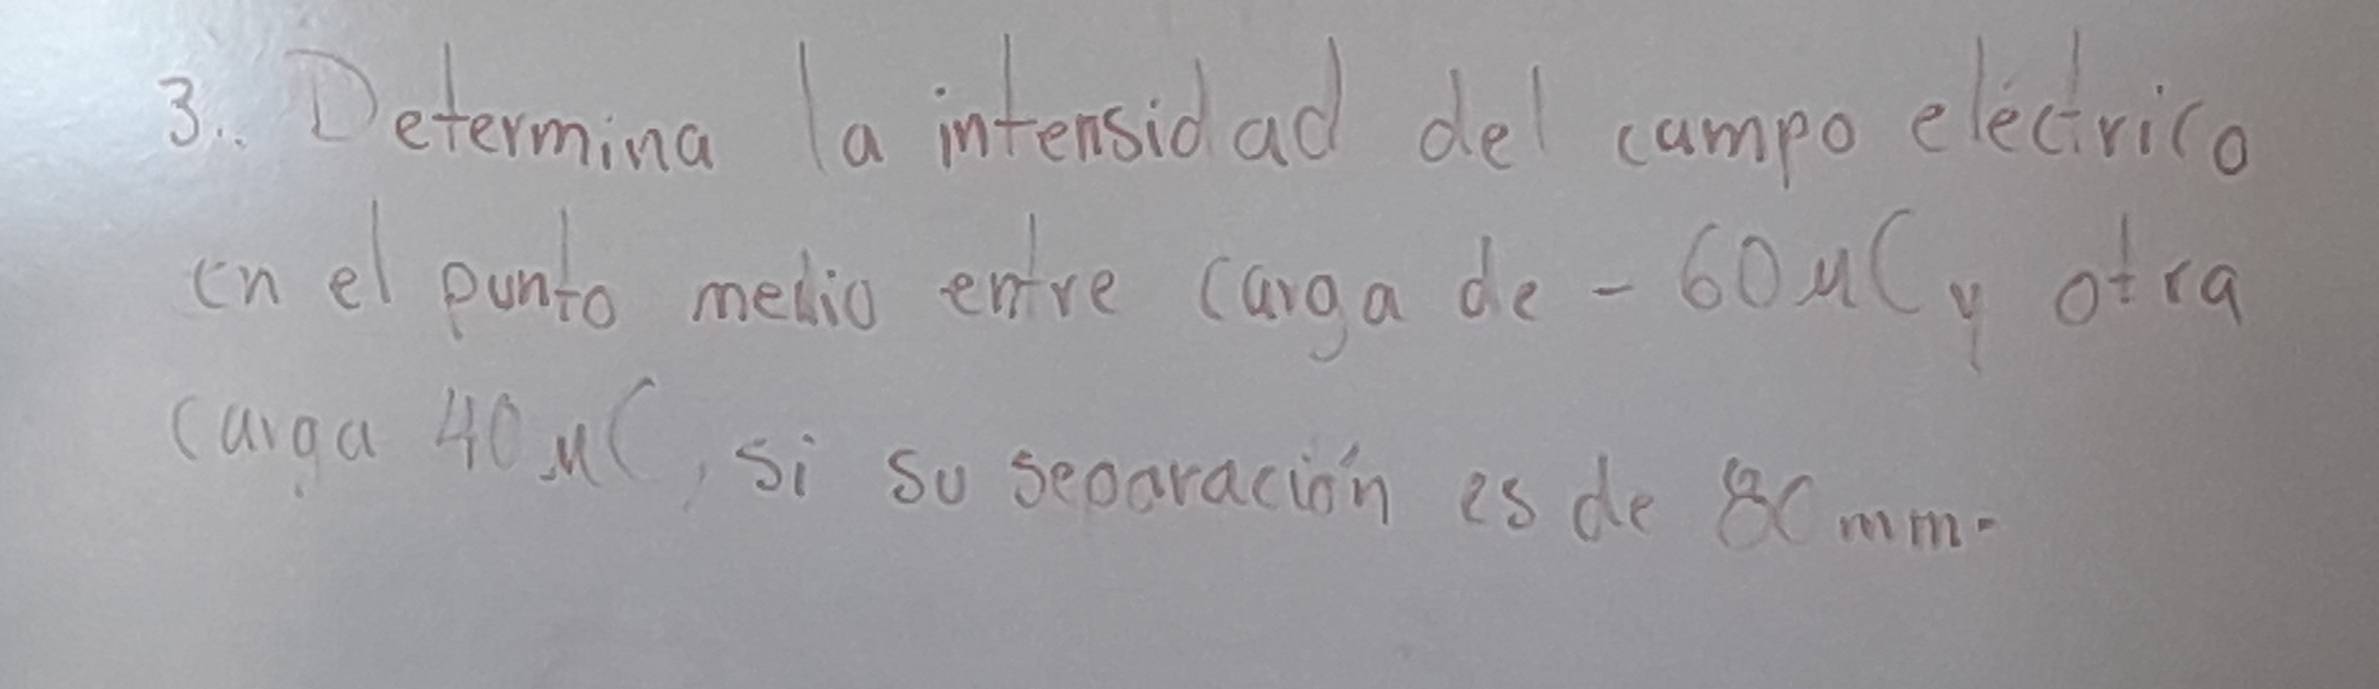 3.. Determina la intensidad del campo eléctrico
en el punto medio entre carga de - 60 μC y otra
carga 40 μC, si su separación es de 80 mm.